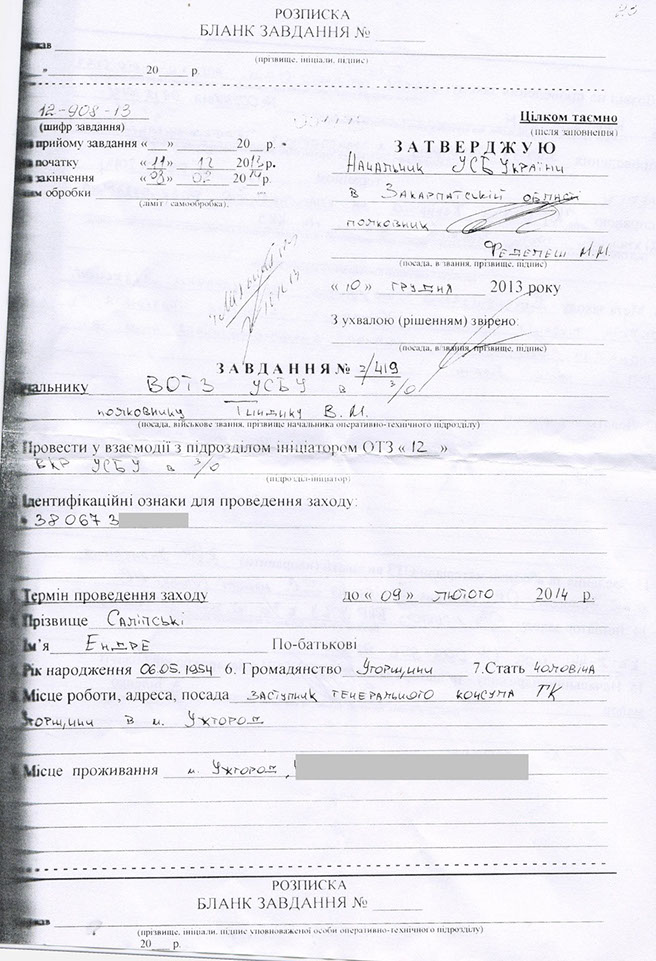 РОЗПИСКА
БЛАНК ЗАВДАННЯ №
(прізвище, ініціали, підпис)
20 р.
12-908-13
(шифр завдання)
Цілком таємно
(після заповнення)
прийому завдання « » 20 р.
ЗАТВЕРДЖУЮ
початку «11» 12 2013 р.
Начальник УСБ України
закінчення «09» 02 2014 р.
в Закарпатській області
обробки
(ліміт самообробка).
полковник
(посада, в/звання, прізвище, підпис)
«10» грудня 2013 року
З ухвалою (рішенням) звірено:
(посада, в/звання, прізвище, підпис)
ЗАВДАННЯ № 2/419
ВОТЗ УСБУ в З/О
полковнику В.М.
(посада, військове звання, прізвище начальника оперативно-технічного підрозділу)
Провести у взаємодії з підрозділом ініціатором ОТЗ «12»
ВКР УСБУ в З/О
(підрозділ-ініціатор)
Ідентифікаційні ознаки для проведення заходу:
38067 3
Термін проведення заходу до «09» лютого 2014 р.
Прізвище Саліпські
Ім'я Ендре По-батькові
Рік народження 06.05.1954 6. Громадянство Угорщини 7.Стать чоловіча
Місце роботи, адреса, посада заступник генерального консула ГК
Угорщини в м. Ужгород
Місце проживання м. Ужгород,
РОЗПИСКА
БЛАНК ЗАВДАННЯ №
(прізвище, ініціали, підпис уповноваженої особи оперативно-технічного підрозділу)
20 р.